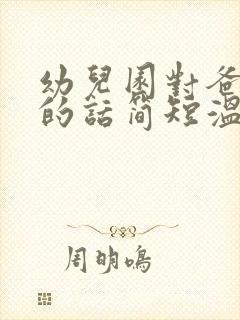 幼兒園對爸
的話简短溫
周明鳴